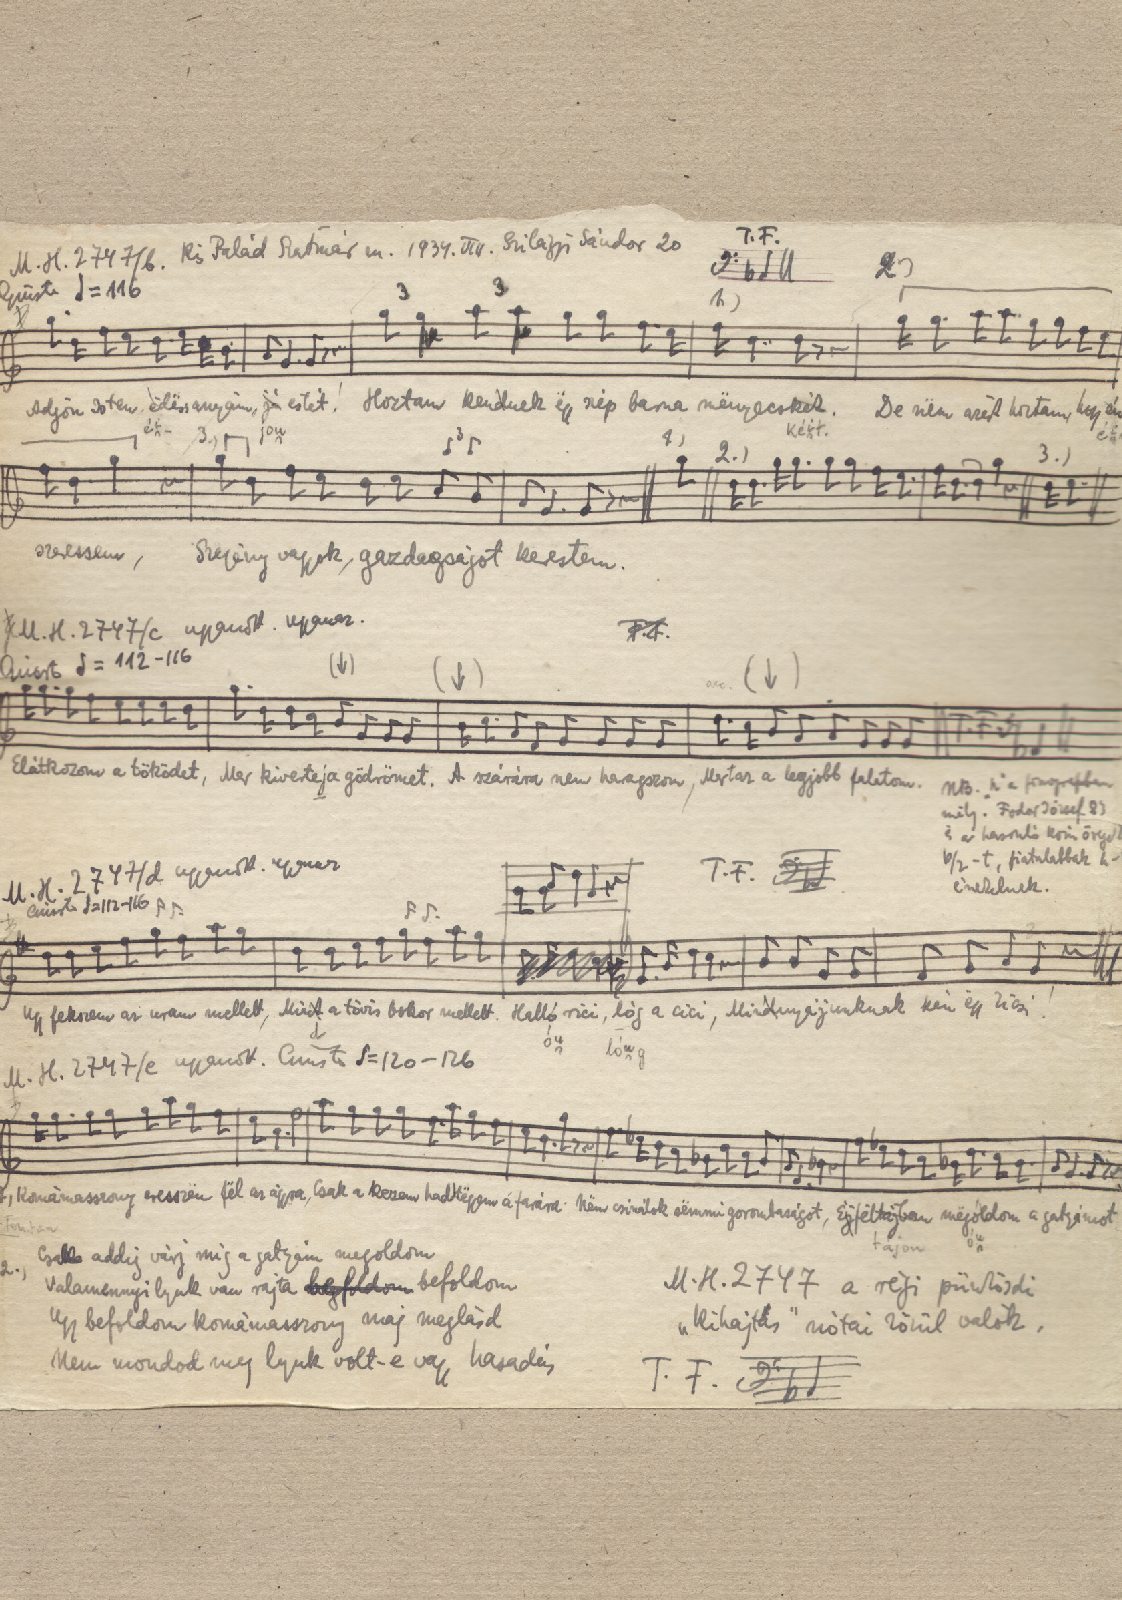 M.H. 2747/b. Kis Palád Szatmár m. 1934. III. Szilágyi Sándor 20
T. F.
Giusto = 116
1.) 2.)
3 3
Adjon Isten, édesanyám, jó estét! Hoztam kendnek égy szép barna ményecskét. De ném azért hoztam, hogy én
3.) 3 1.) 2.) 3.)
szeressem, Szegény vagyok, gazdagságot kerestem.
M.H. 2747/c ugyanott. ugyanaz.
T.F.
Giusto = 112-116
(↓) (↓) (↓)
T. F.
Elátkozom a töködet, Mer kiverte ja gödrömet. A szárára nem haragszom, Mer taz a legjobb falatom.
NB. "h" a fonografban
mély. Fodor József 83
é a hasonló korú öregek
b/2-t, fiatalabbak h-t
énekelnek.
M.H. 2747/d ugyanott. ugyanaz
T. F.
Giusto = 112-116
Ugy fekszem az uram mellett, Mint a tövis bokor mellett. Halló rici, lóg a cici, Mindnyájunknak kén égy
lóug
M.H. 2747/e ugyanott. Giusto = 120-126
1., Komámasszony eresszén fél az ágyra, Csak a kezem hadtégyem a farára. Ném csinálok sémmi gorombaságot, Éjféltájban mégóldom a gatyámot
tájon
2., Csak addig várj míg a gatyám megoldom
Valamennyi lyuk van rajta befoldom
Ugy befoldom komámasszony maj meglásd
Nem mondod meg lyuk volt-e vagy hasadás
M.H. 2747 a régi pünkösdi
„Kihajtás" nótái közül valók.
T. F.